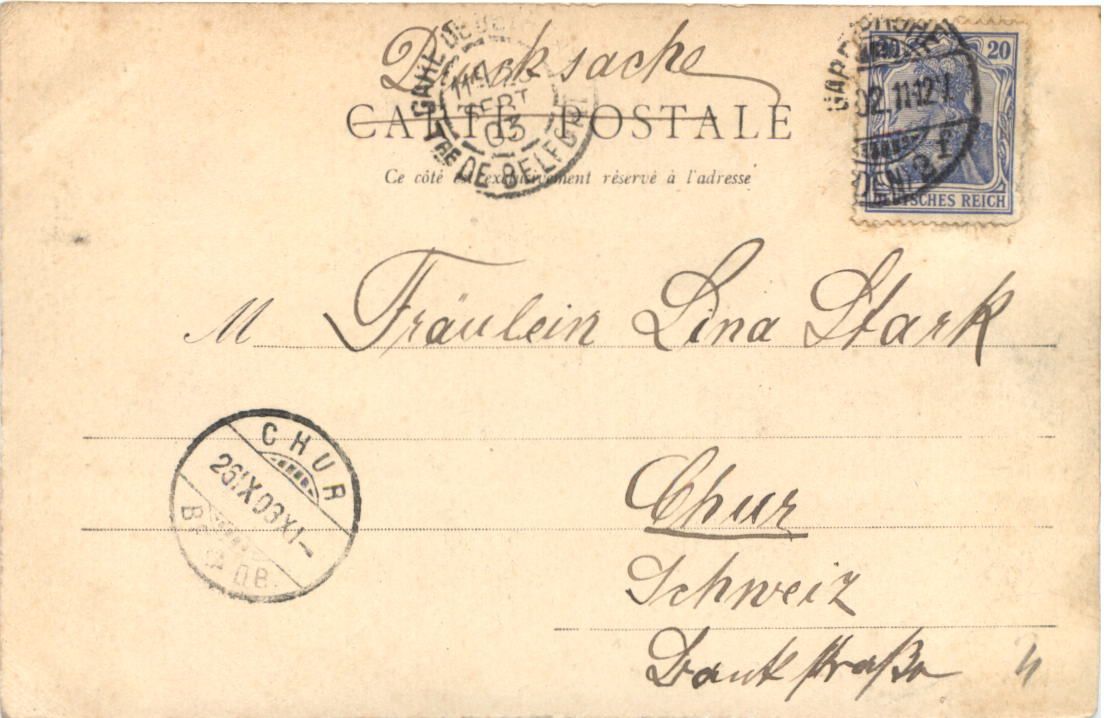 Drucksache
CARTE POSTALE
Ce côté est exclusivement réservé à l'adresse
GARE DE
SEPT
03
DE BELFORT
20
02.11-12
DEUTSCHES REICH
M Fräulein Lina Stark
CHUR
26.IX.03.XI-
Chur
Schweiz
Bankstraße